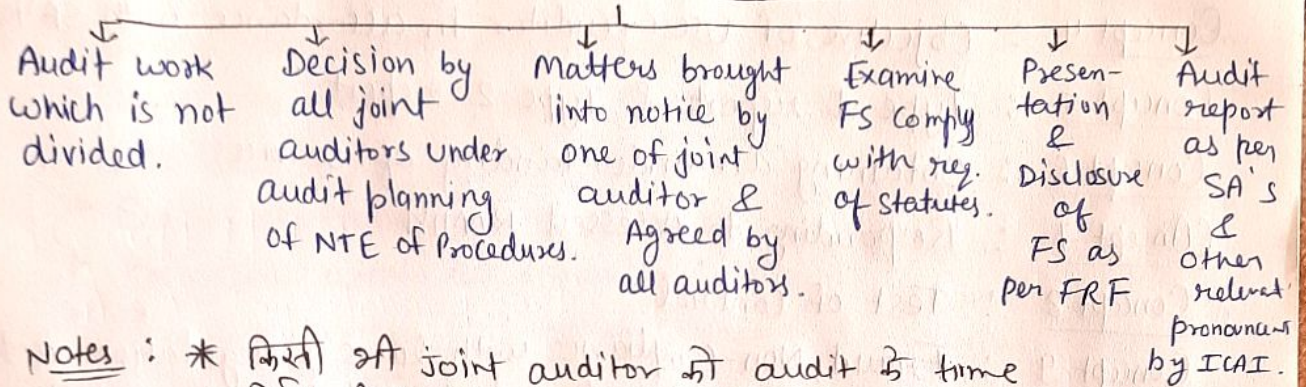 Audit work
which is not
divided.
Decision by
all joint
auditors under
audit planning
of NTE of Procedures.
Matters brought
into notice by
one of joint
auditor &
Agreed by
all auditors.
Examine
FS comply
with req.
of statutes.
Presen-
tation
&
Disclosure
of
FS as
per FRF
Audit
report
as per
SA's
&
other
relevat
pronouncmt
by ICAI.
Notes : * किसी भी joint auditor को audit के time